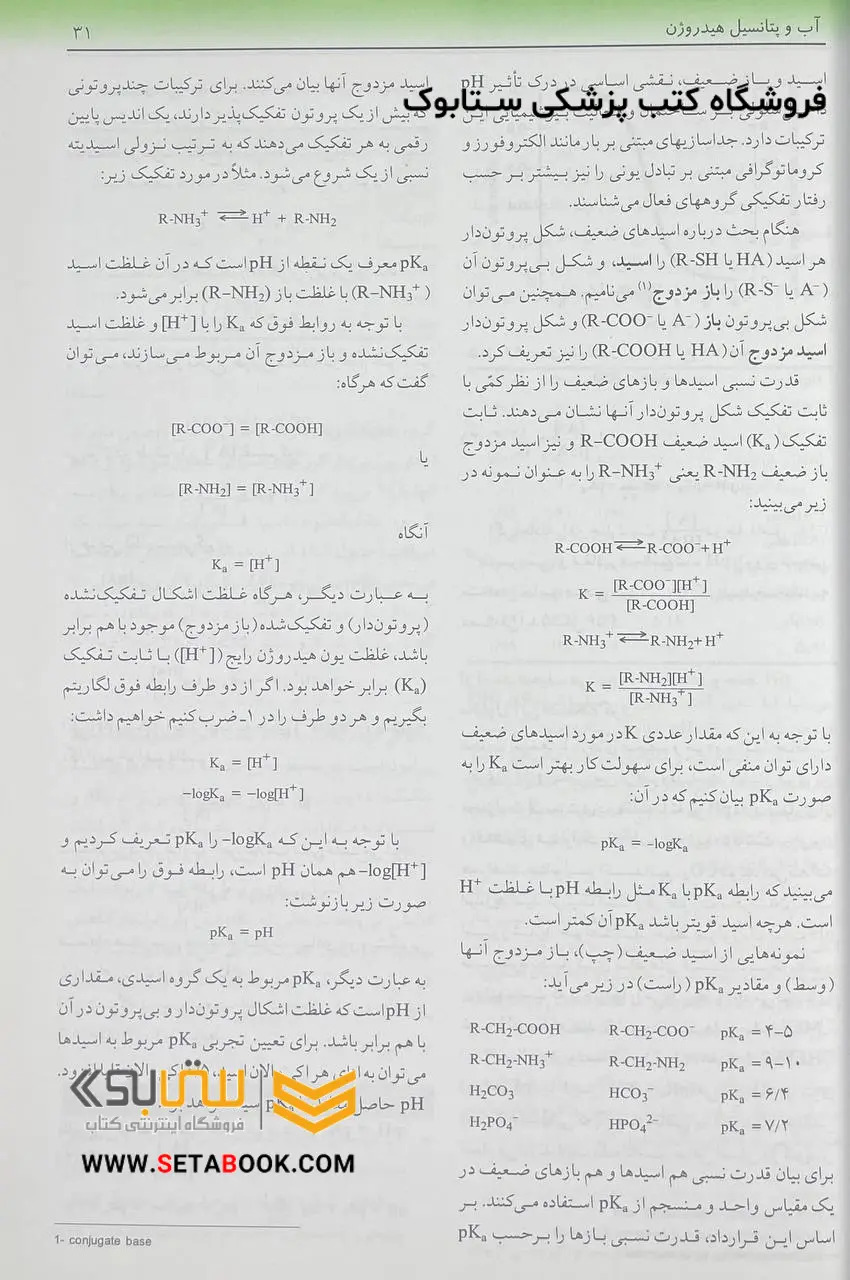 آب و پتانسیل هیدروژن
۳۱
اسـید و بـاز ضـعیف، نـقشی اساسی در درک تأثـیر pH
فروشگاه کتب پزشکی ستابوک
ترکیبات دارد. جداسازیهای مبتنی بر بار مانند الکتروفورز و
کروماتوگرافی مبتنی بر تبادل یونی را نیز بـیشتر بـر حسب
رفتار تفکیکی گروههای فعال می‌شناسند.
هنگام بحث درباره اسیدهای ضعیف، شکل پروتون‌دار
هر اسید (HA یا R-SH) را اسید، و شکـل بـی‌پروتون آن
(A⁻ یا R-S⁻) را باز مزدوج(۱) می‌نامیم. همـچنین مـی‌توان
شکل بی‌پروتون باز (A⁻ یا R-COO⁻) و شکل پروتون‌دار
اسید مزدوج آن (HA یا R-COOH) را نیز تعریف کرد.
قدرت نسبی اسیدها و بازهای ضعیف را از نظر کمّی با
ثابت تفکیک شکل پروتون‌دار آنـها نشـان مـی‌دهند. ثـابت
تفکیک (Ka) اسید ضعیف R–COOH و نیز اسید مزدوج
باز ضعیف R-NH₂ یعنی R–NH₃⁺ را به عـنوان نـمونه در
زیر می‌بینید:
R-COOH ⇌ R-COO⁻ + H⁺
K = [R-COO⁻][H⁺] / [R-COOH]
R-NH₃⁺ ⇌ R-NH₂ + H⁺
K = [R-NH₂][H⁺] / [R-NH₃⁺]
با توجه به این که مقدار عددی K در مورد اسیدهای ضعیف
دارای توان منفی است، برای سهولت کار بهتر است Ka را به
صورت pKa بیان کنیم که در آن:
pKa = –logKa
می‌بینید که رابطه pKa با Ka مـثل رابـطه pH بـا غـلظت H⁺
است. هرچه اسید قویتر باشد pKa آن کمتر است.
نمونه‌هایی از اسـید ضـعیف (چپ)، بـاز مـزدوج آنـها
(وسط) و مقادیر pKa (راست) در زیر می‌آید:
R-CH₂-COOH R-CH₂-COO⁻ pKa = ۴–۵
R-CH₂-NH₃⁺ R-CH₂-NH₂ pKa = ۹–۱۰
H₂CO₃ HCO₃⁻ pKa = ۶/۴
H₂PO₄⁻ HPO₄²⁻ pKa = ۷/۲
برای بیان قدرت نسبی هم اسیدها و هم بازهای ضعیف در
یک مقیاس واحـد و مـنسجم از pKa اسـتفاده مـی‌کنند. بـر
اساس ایـن قـرارداد، قـدرت نسـبی بـازها را بـرحسب pKa
اسید مزدوج آنها بیان می‌کنند. برای ترکیبات چندپروتونی
که بیش از یک پروتون تفکیک‌پذیر دارند، یک اندیس پایین
رقمی به هر تفکیک می‌دهند که به تـرتیب نـزولی اسـیدیته
نسبی از یک شروع می‌شود. مثلاً در مورد تفکیک زیر:
R-NH₃⁺ ⇌ H⁺ + R-NH₂
pKa معرف یک نـقطه از pH است کـه در آن غـلظت اسـید
(R–NH₃⁺) با غلظت باز (R–NH₂) برابر می‌شود.
با توجه به روابط فوق که Ka را با [H⁺] و غلظت اسـید
تفکیک‌نشده و باز مـزدوج آن مـربوط مـی‌سازند، مـی‌توان
گفت که هرگاه:
[R-COO⁻] = [R-COOH]
یا
[R-NH₂] = [R-NH₃⁺]
آنگاه
Ka = [H⁺]
بـه عـبارت دیگـر، هـرگاه غلظت اشکـال تـفکیک‌نشده
(پروتون‌دار) و تفکیک‌شده (باز مزدوج) موجود با هم برابر
باشد، غلظت یون هیدروژن رایج ([H⁺]) بـا ثـابت تـفکیک
(Ka) برابر خواهد بود. اگر از دو طرف رابطه فوق لگاریتم
بگیریم و هر دو طرف را در ۱- ضرب کنیم خواهیم داشت:
Ka = [H⁺]
–logKa = –log[H⁺]
با توجه بـه ایـن کـه –logKa را pKa تـعریف کـردیم و
–log[H⁺] هم همان pH است، رابـطه فـوق را مـی‌توان بـه
صورت زیر بازنوشت:
pKa = pH
به عبارت دیگر، pKa مربوط به یک گروه اسیدی، مـقداری
از pH است که غلظت اشکال پروتون‌دار و بی‌پروتون در آن
با هم برابر باشد. برای تعیین تجربی pKa مربوط به اسیدها
می‌توان به ازای هر اکی‌والان اسید،
pH حاصل
ستابوک
فروشگاه اینترنتی کتاب
WWW.SETABOOK.COM
1- conjugate base